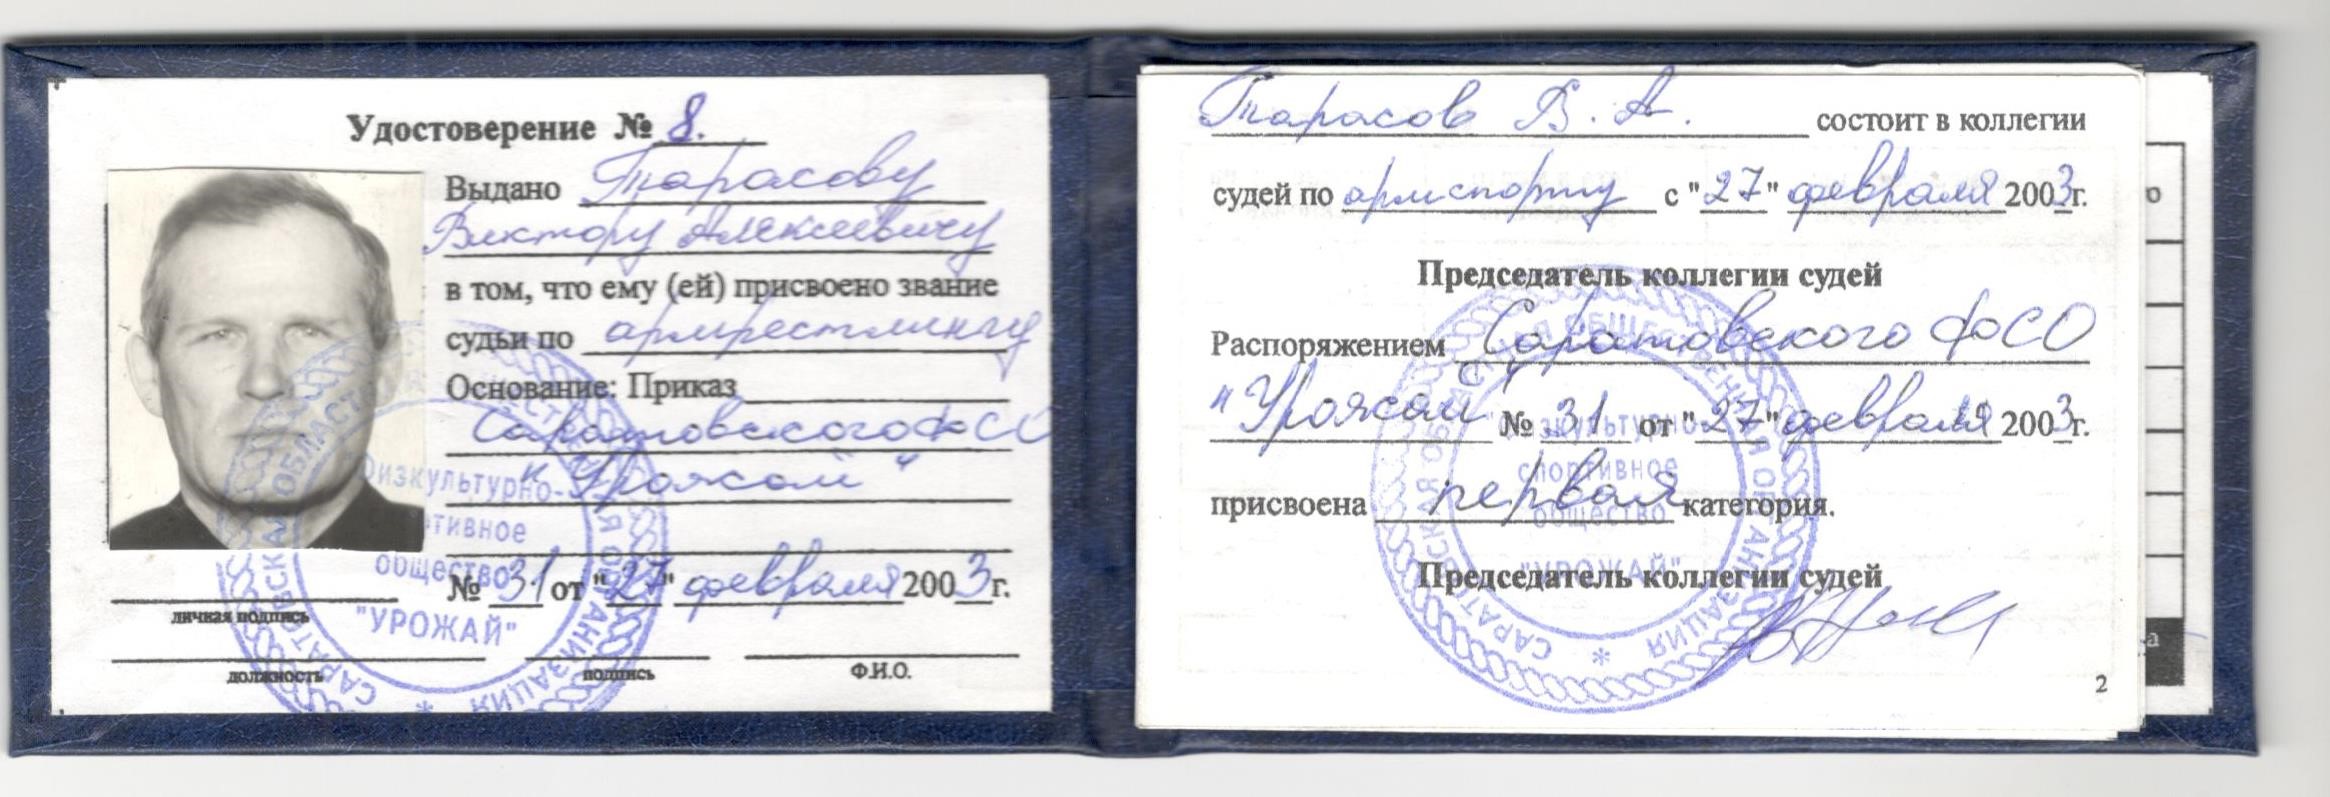 Удостоверение № 8.
Выдано Тарасову
Виктору Алексеевичу
в том, что ему (ей) присвоено звание
судьи по армрестлингу
Основание: Приказ
Саратовского ФСО
"Урожай"
№ 31 от "27" февраля 2003 г.
личная подпись
должность подпись Ф.И.О.
САРАТОВСКАЯ ОБЛАСТНАЯ ОБЩЕСТВЕННАЯ ОРГАНИЗАЦИЯ *
Физкультурно-
спортивное
общество
"УРОЖАЙ"
Тарасов В. А. состоит в коллегии
судей по армспорту с "27" февраля 2003 г.
Председатель коллегии судей
Распоряжением Саратовского ФСО
"Урожай" № 31 от "27" февраля 2003 г.
присвоена первая категория.
Председатель коллегии судей
САРАТОВСКАЯ ОБЛАСТНАЯ ОБЩЕСТВЕННАЯ ОРГАНИЗАЦИЯ *
Физкультурно-
спортивное
общество
"УРОЖАЙ"
2